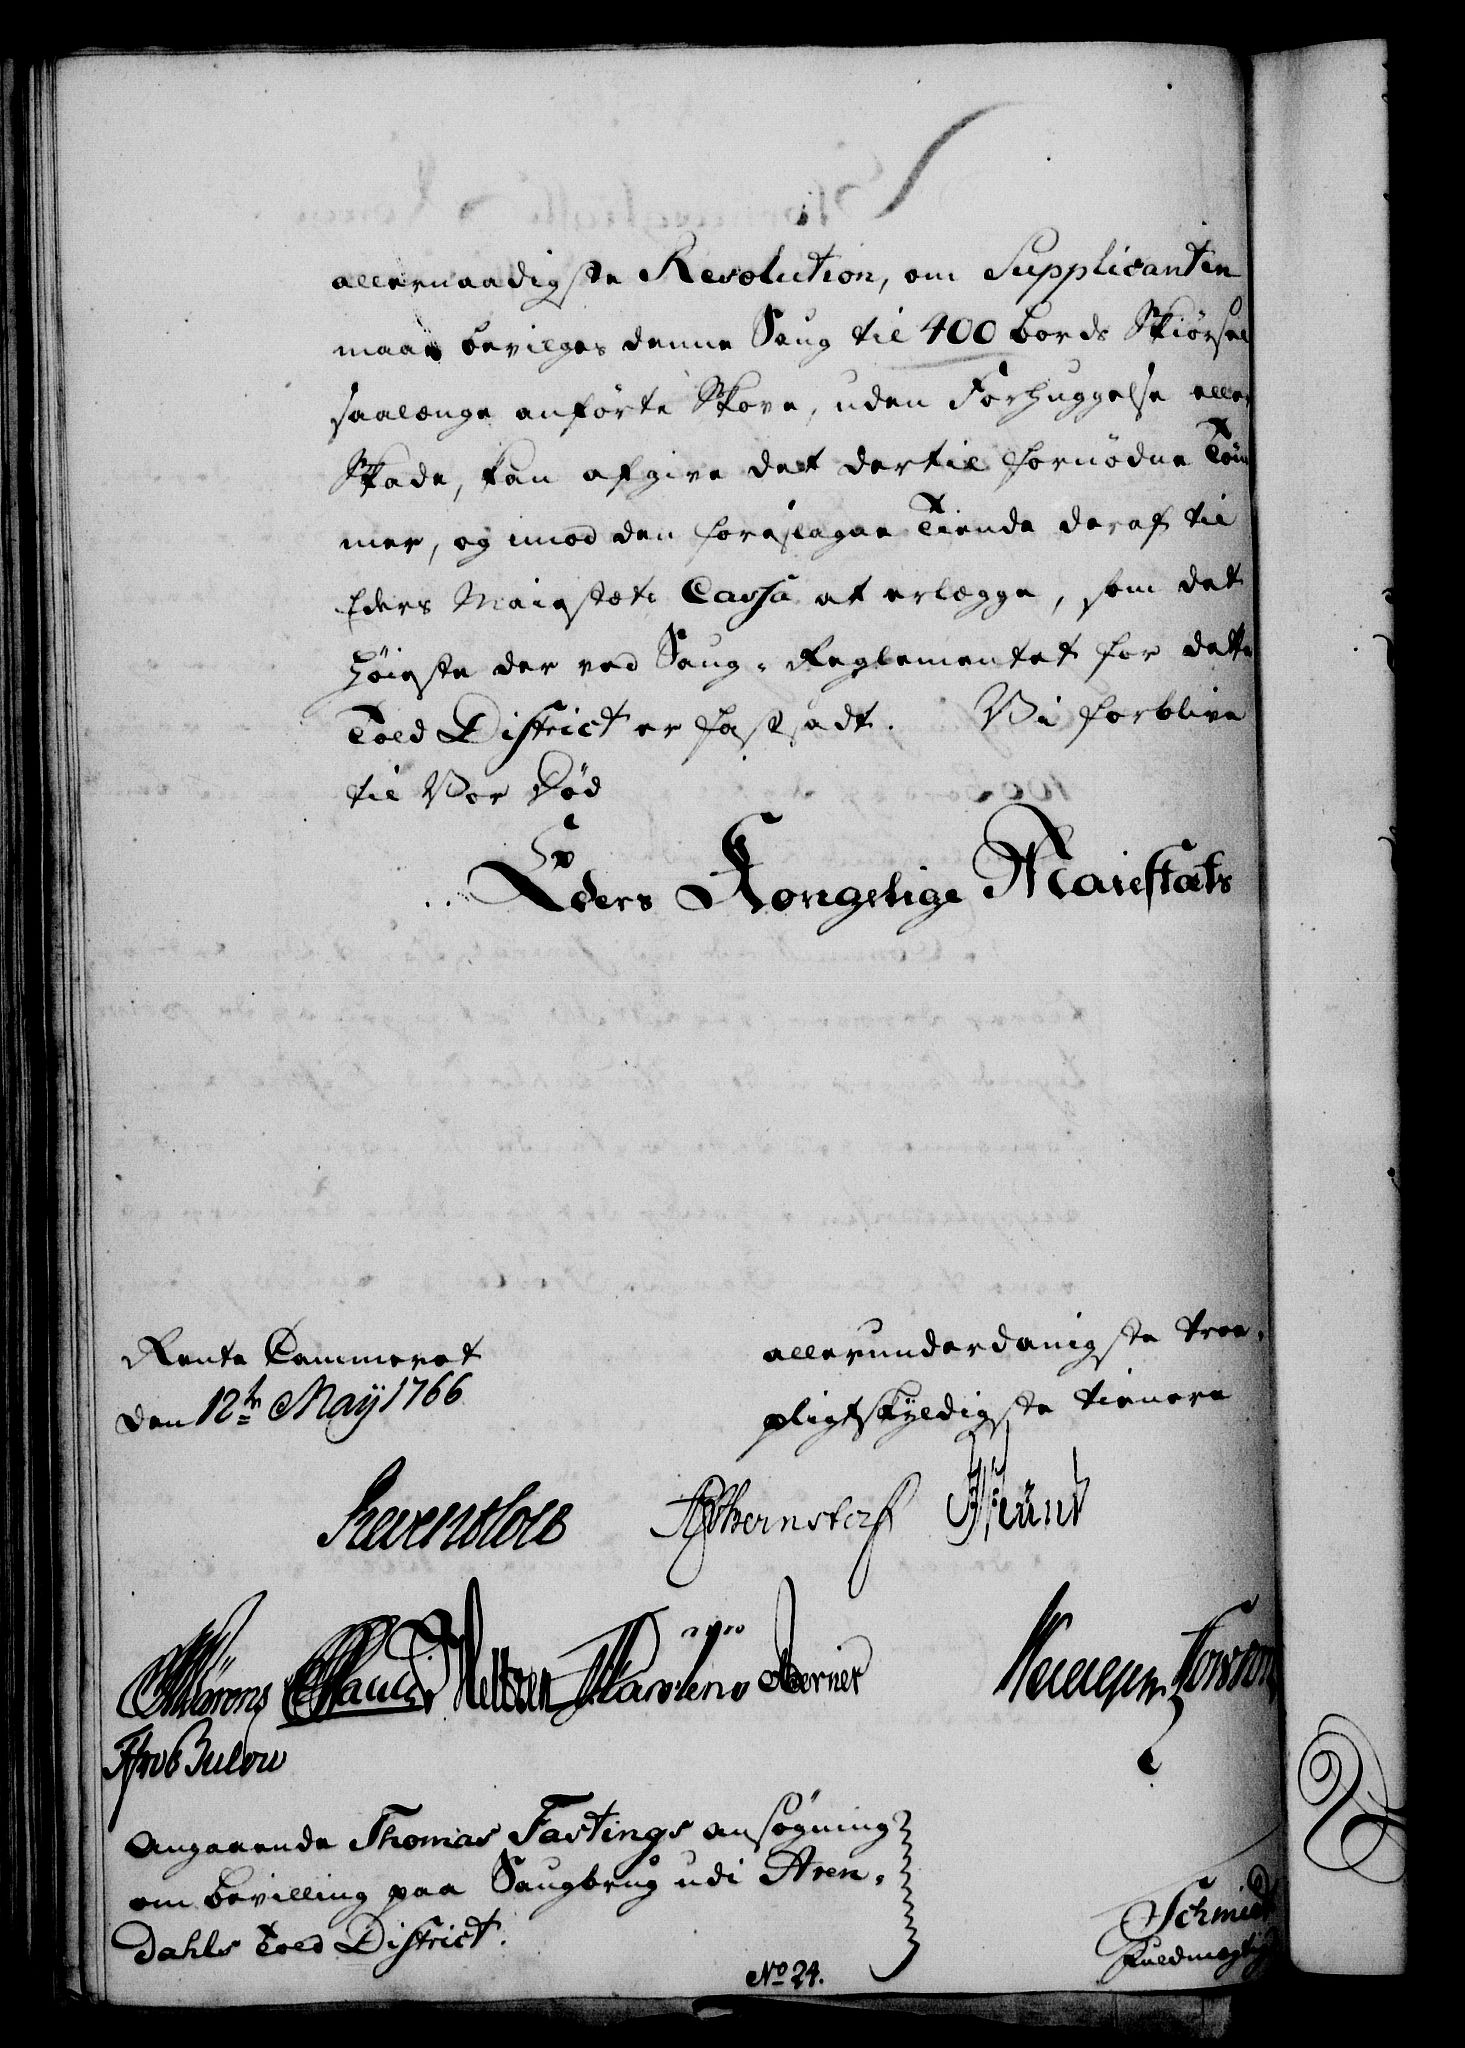 allernaadigste Resolution, om Supplicanten
maae bevilges denne Saug til 400 bords Skiørsel
saalænge anførte Skove, uden Forhuggelse eller
Skade, kan afgive det dertil fornødne Töm
mer, og imod den foreslagne Tiende deraf til
Eders Maiestæts Cassa at erlægge, som det
høieste der ved Saug-Reglementet for dette
Told District er fastsadt. Vi forblive
til Vor Død
Eders Kongelige Maiestæts
Rente Cammeret
den 12te Maÿ 1766
allerunderdanigste troe-
pligtskyldigste tienere
Reventlow
Angaaende Thomas Fastings ansøgning
om bevilling paa Saugbrug udi Aren-
dahls Told District.
No 24.
Schmidt
Fuldmægtig